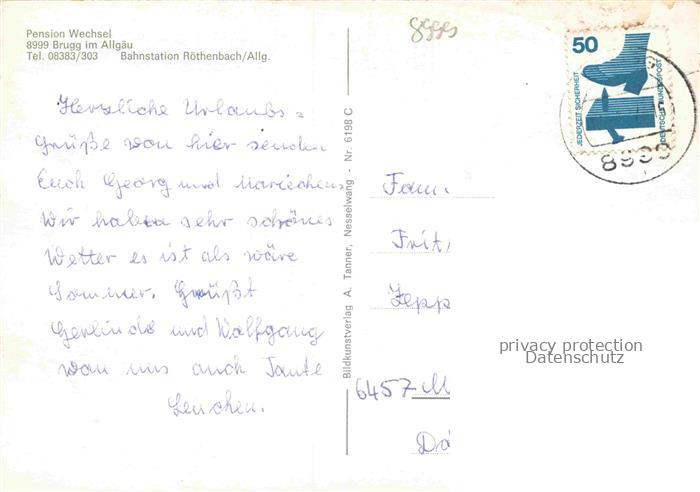 Pension Wechsel
8999 Brugg im Allgäu
Tel. 08383/303 Bahnstation Röthenbach/Allg.
Herzliche Urlaubs =
Grüße von hier senden
Euch Georg und Mariechen
Wir haben sehr schönes
Wetter es ist als wäre
Sommer. Grüßt
Gerlinde und Wolfgang
von uns auch Tante
Lenchen.
Bildkunstverlag A. Tanner, Nesselwang - Nr. 6198 C
50
JEDERZEIT SICHERHEIT
DEUTSCHE BUNDESPOST
Fam.
Frit
Zepp
6457 M
privacy protection
Datenschutz